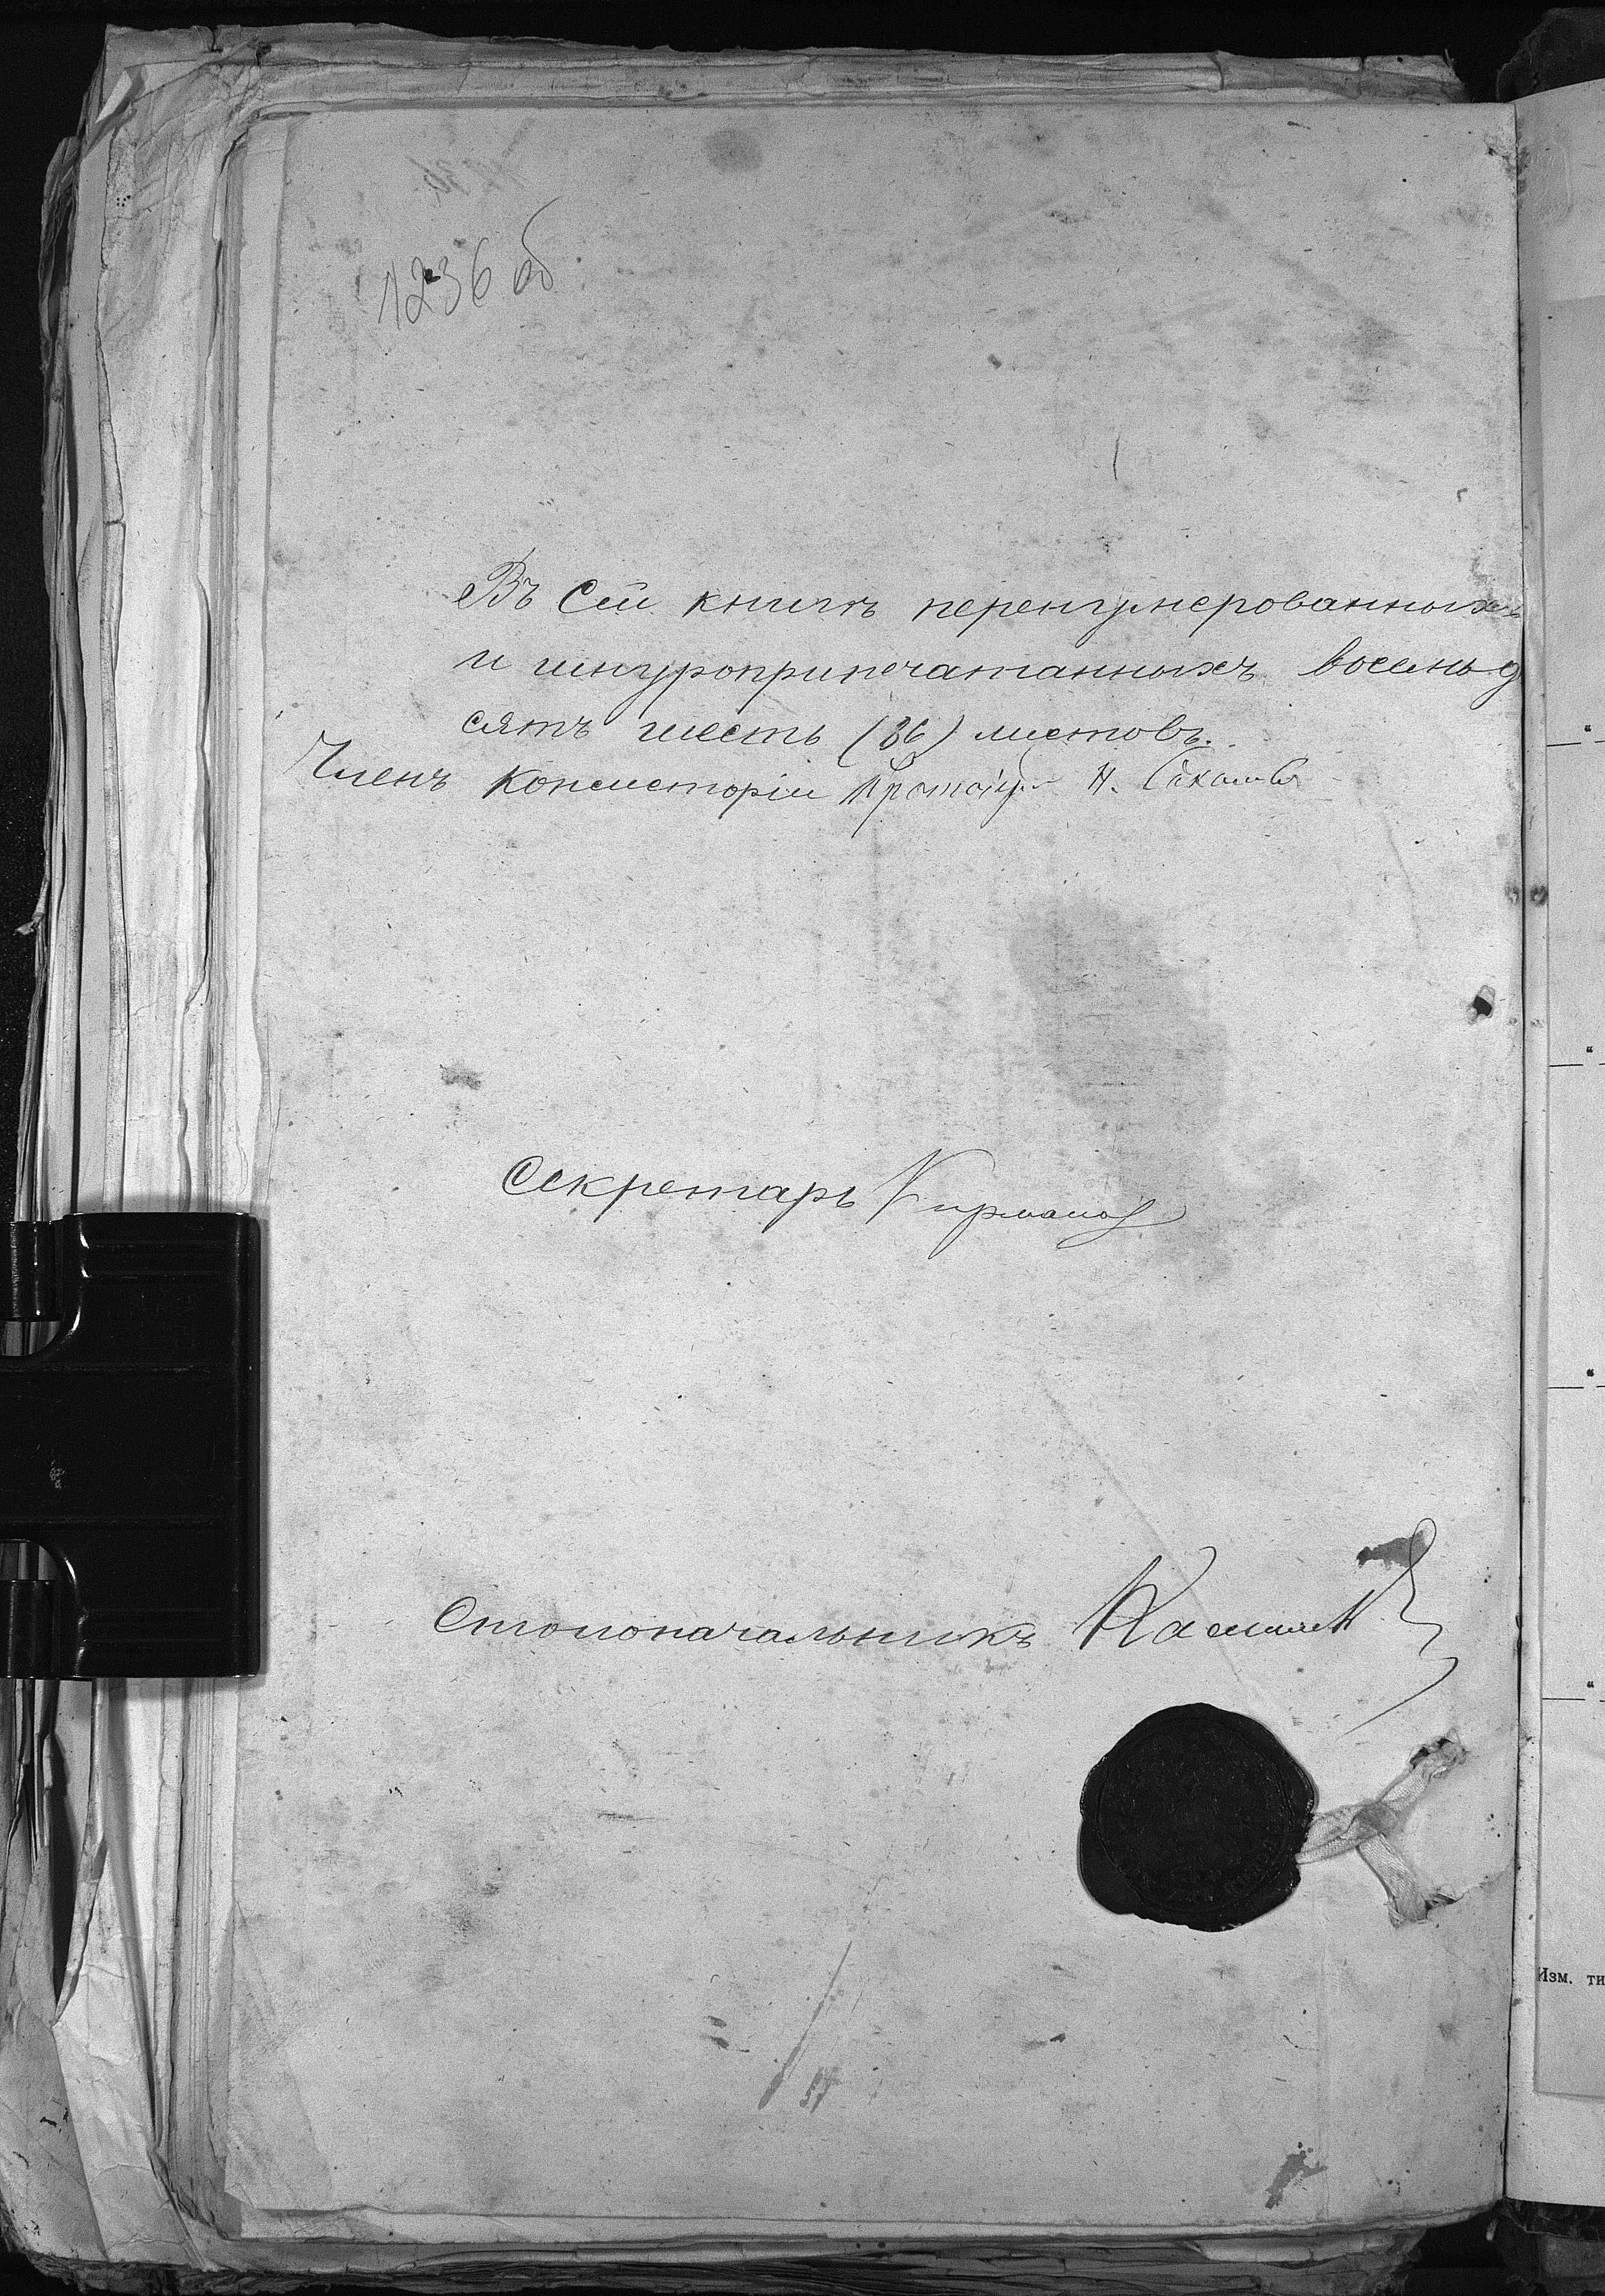 1236 об
Въ сей книгѣ перенумерованныхъ
и шнуроприпечатанныхъ восемьд
сятъ шесть (86) листовъ.
Членъ Консисторіи Протоіер. Н.
Секретарь
Столоначальникъ
Изм. ти